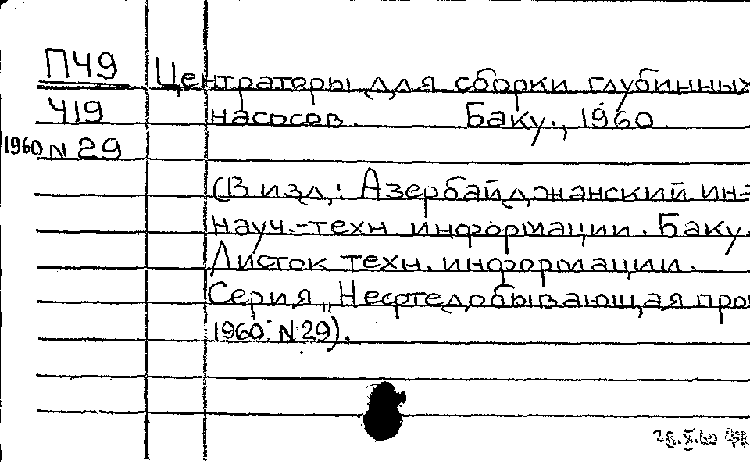 П49 Центраторы для сборки глубинных
419 насосов. Баку., 1960
1960 N 29
(В изд.: Азербайджанский инс
науч.-техн информации. Баку.
Листок техн. информации.
Серия „Нефтедобывающая про
1960. N 29).